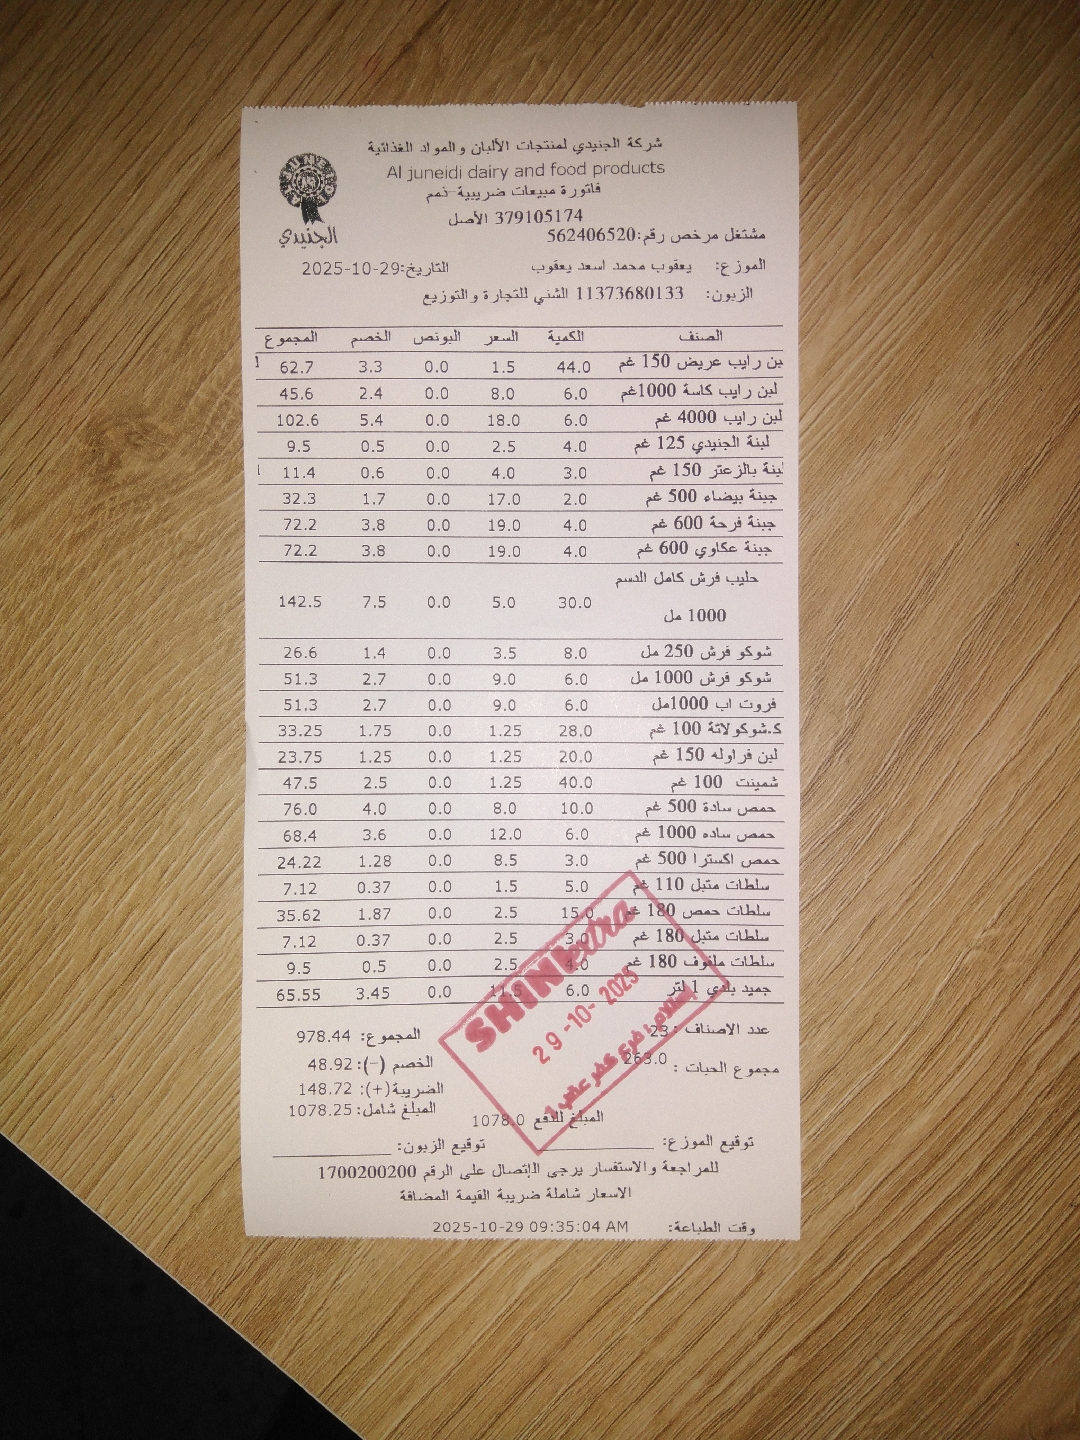 شركة الجنيدي لمنتجات الألبان والمواد الغذائية
Al juneidi dairy and food products
فاتورة مبيعات ضريبية-ذمم
379105174 الأصل
مشتغل مرخص رقم:562406520
الجنيدي
الموزع: يعقوب محمد اسعد يعقوب التاريخ:29-10-2025
الزبون: 11373680133 الشني للتجارة والتوزيع
الصنف الكمية السعر البونص الخصم المجموع
بن رايب عريض 150 غم 44.0 1.5 0.0 3.3 62.7
لبن رايب كاسة 1000غم 6.0 8.0 0.0 2.4 45.6
لبن رايب 4000 غم 6.0 18.0 0.0 5.4 102.6
لبنة الجنيدي 125 غم 4.0 2.5 0.0 0.5 9.5
لبنة بالزعتر 150 غم 3.0 4.0 0.0 0.6 11.4
جبنة بيضاء 500 غم 2.0 17.0 0.0 1.7 32.3
جبنة فرحة 600 غم 4.0 19.0 0.0 3.8 72.2
جبنة عكاوي 600 غم 4.0 19.0 0.0 3.8 72.2
حليب فرش كامل الدسم
1000 مل 30.0 5.0 0.0 7.5 142.5
شوكو فرش 250 مل 8.0 3.5 0.0 1.4 26.6
شوكو فرش 1000 مل 6.0 9.0 0.0 2.7 51.3
فروت اب 1000مل 6.0 9.0 0.0 2.7 51.3
ك.شوكولاتة 100 غم 28.0 1.25 0.0 1.75 33.25
لبن فراوله 150 غم 20.0 1.25 0.0 1.25 23.75
شمينت 100 غم 40.0 1.25 0.0 2.5 47.5
حمص سادة 500 غم 10.0 8.0 0.0 4.0 76.0
حمص ساده 1000 غم 6.0 12.0 0.0 3.6 68.4
حمص اكسترا 500 غم 3.0 8.5 0.0 1.28 24.22
سلطات متبل 110 غم 5.0 1.5 0.0 0.37 7.12
سلطات حمص 180 غم 15.0 2.5 0.0 1.87 35.62
سلطات متبل 180 غم 3.0 2.5 0.0 0.37 7.12
سلطات ملفوف 180 غم 4.0 2.5 0.0 0.5 9.5
جميد بلدي 1 لتر 6.0 11.5 0.0 3.45 65.55
عدد الاصناف : 23 المجموع: 978.44
مجموع الحبات : 263.0 الخصم (-): 48.92
الضريبة(+): 148.72
المبلغ شامل: 1078.25
المبلغ للدفع 1078.0
توقيع الموزع: توقيع الزبون:
للمراجعة والاستفسار يرجى الإتصال على الرقم 1700200200
الاسعار شاملة ضريبة القيمة المضافة
وقت الطباعة: 2025-10-29 09:35:04 AM
SHINI extra
29-10-2025
فرع كفر عقب